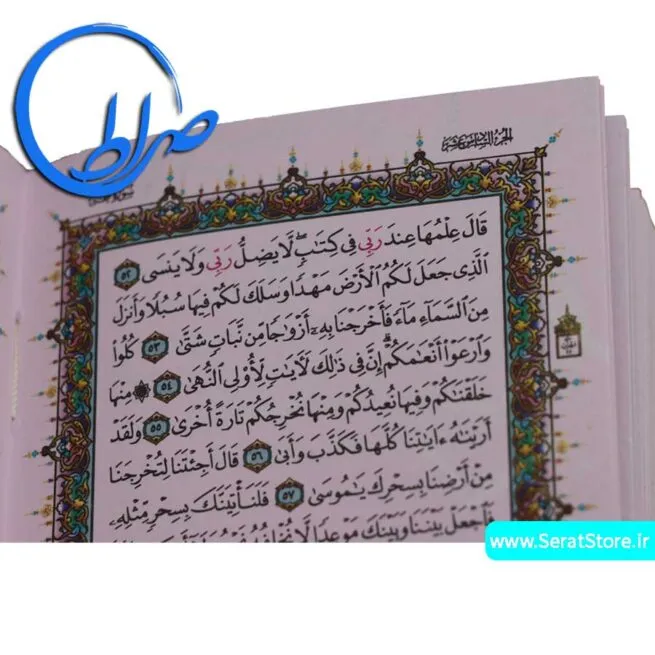 صراط
الجزء السادس عشر
قَالَ عِلْمُهَا عِندَ رَبِّي فِي كِتَٰبٍۖ لَّا يَضِلُّ رَبِّي وَلَا يَنسَى ٥٢
الَّذِي جَعَلَ لَكُمُ الْأَرْضَ مَهْدًا وَسَلَكَ لَكُمْ فِيهَا سُبُلًا وَأَنزَلَ
مِنَ السَّمَاءِ مَاءً فَأَخْرَجْنَا بِهِۦٓ أَزْوَٰجًا مِّن نَّبَاتٍ شَتَّىٰ ٥٣ كُلُوا
وَارْعَوْا أَنْعَٰمَكُمْۗ إِنَّ فِي ذَٰلِكَ لَآيَٰتٍ لِّأُولِي النُّهَىٰ ٥٤ مِنْهَا
خَلَقْنَٰكُمْ وَفِيهَا نُعِيدُكُمْ وَمِنْهَا نُخْرِجُكُمْ تَارَةً أُخْرَىٰ ٥٥ وَلَقَدْ
أَرَيْنَٰهُ ءَايَٰتِنَا كُلَّهَا فَكَذَّبَ وَأَبَىٰ ٥٦ قَالَ أَجِئْتَنَا لِتُخْرِجَنَا
مِنْ أَرْضِنَا بِسِحْرِكَ يَٰمُوسَىٰ ٥٧ فَلَنَأْتِيَنَّكَ بِسِحْرٍ مِّثْلِهِۦ
فَاجْعَلْ بَيْنَنَا وَبَيْنَكَ مَوْعِدًا لَّا نُخْلِفُهُ
www.SeratStore.ir